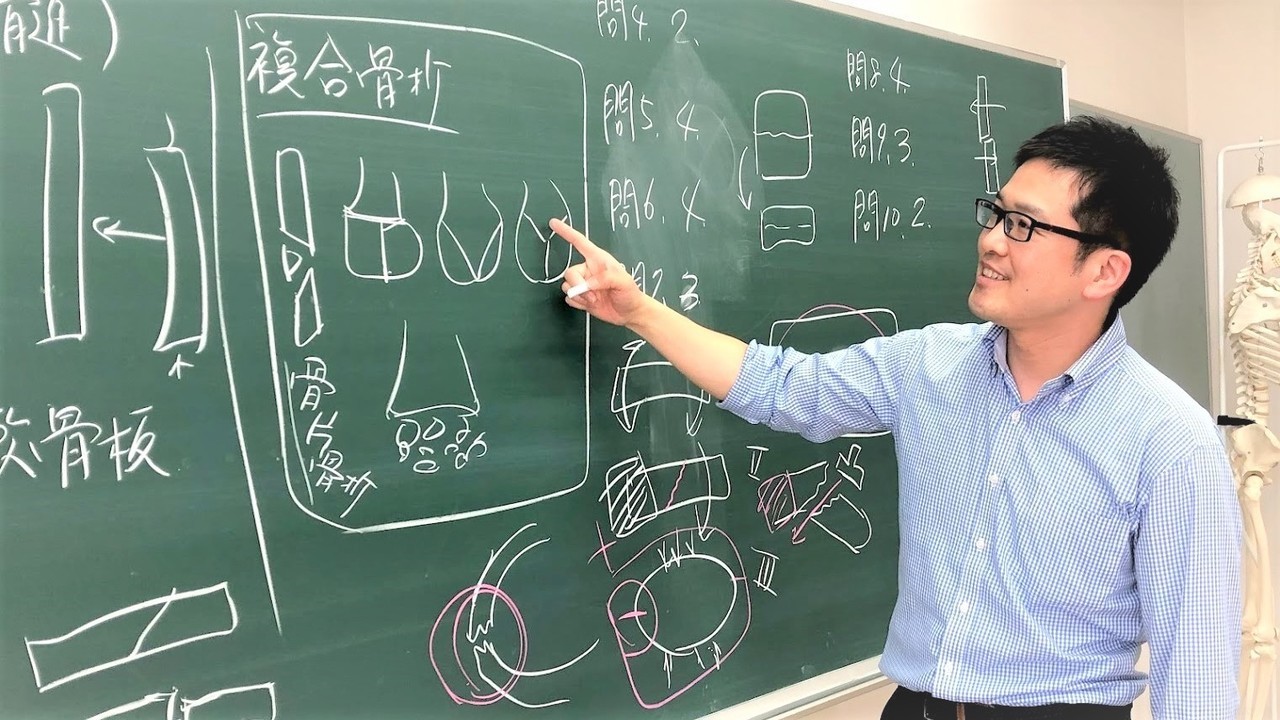 複合骨折
骨片骨折
軟骨板
問4. 2.
問5. 4.
問6. 4.
3
問8. 4.
問9. 3.
問10. 2.
II
III